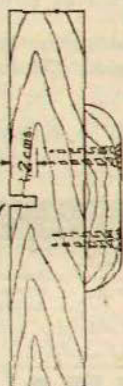 1.2 cms.